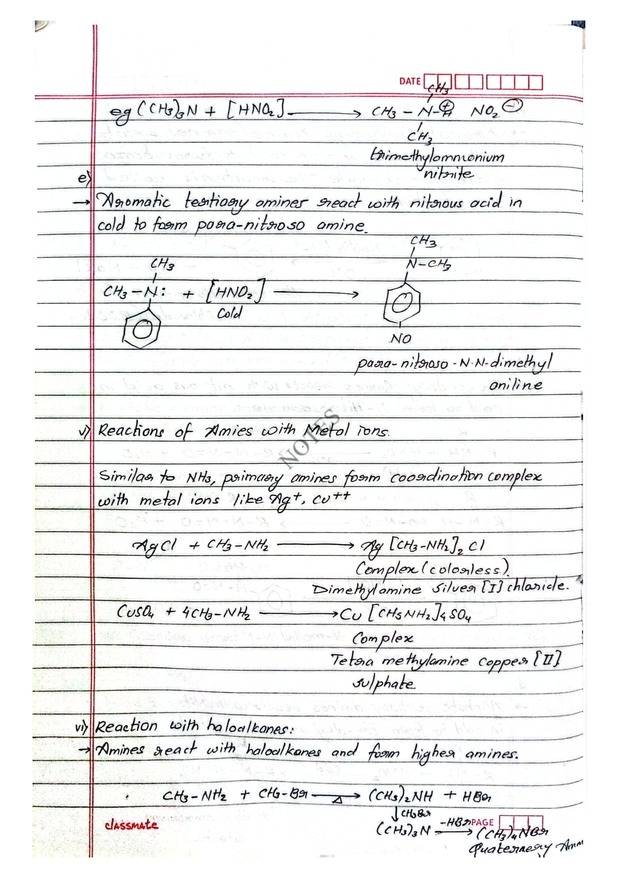 DATE
CH3
eg (CH3)3N + [HNO2] → CH3 – N⊕–H NO2⊖
CH3
trimethylammonium
nitrite
e)
→ Aromatic tertiary amines react with nitrous acid in
cold to form para-nitroso amine.
CH3
CH3 N–CH3
CH3–N: + [HNO2] →
Cold
NO
para-nitroso-N·N-dimethyl
aniline
v) Reactions of Amies with Metal ions.
NOTES
Similar to NH3, primary amines form coordination complex
with metal ions like Ag+, Cu++
AgCl + CH3–NH2 → Ag [CH3-NH2]2 Cl
Complex (colorless).
Dimethylamine Silver [I] chloride.
CuSO4 + 4CH3–NH2 → Cu [CH3NH2]4SO4
Complex
Tetra methylamine copper [II]
sulphate
vi) Reaction with haloalkanes:
→ Amines react with haloalkanes and form higher amines.
CH3–NH2 + CH3–Br →Δ (CH3)2NH + HBr
↓CH3Br
classmate (CH3)3N –HBr→ (CH3)4NBr PAGE
Quaternery Amm